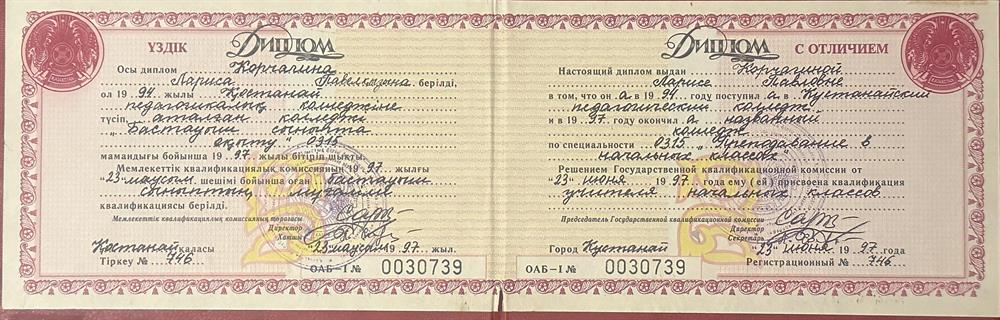 ҮЗДІК ДИПЛОМ
Осы диплом Корчагина
Лариса Павелқызына берілді,
ол 19 94 жылы Қостанай
педагогикалық колледжіне
түсіп, аталған колледжі
„Бастауыш сыныпта
оқыту" 0315
мамандығы бойынша 19 97 жылы бітіріп шықты.
Мемлекеттік квалификациялық комиссияның 19 97 жылғы
"23" маусым шешімі бойынша оған бастауыш
сыныптың мұғалімі
квалификациясы берілді.
Мемлекеттік квалификациялық комиссияның төрағасы
Директор
Хатшы
Қостанай қаласы "23" маусым 19 97 жыл.
Тіркеу № 746
ОАБ–І № 0030739
ДИПЛОМ С ОТЛИЧИЕМ
Настоящий диплом выдан Корчагиной
Ларисе Павловне
в том, что он а в 19 94 году поступил а в Кустанайский
педагогический колледж
и в 19 97 году окончил а названный
колледж
по специальности 0315 „Преподавание в
начальных классах
Решением Государственной квалификационной комиссии от
"23" июня 19 97 года ему (ей) присвоена квалификация
учителя начальных классов
Председатель Государственной квалификационной комиссии
Директор
Секретарь
Город Кустанай "23" июня 19 97 года
Регистрационный № 746
ОАБ–І № 0030739